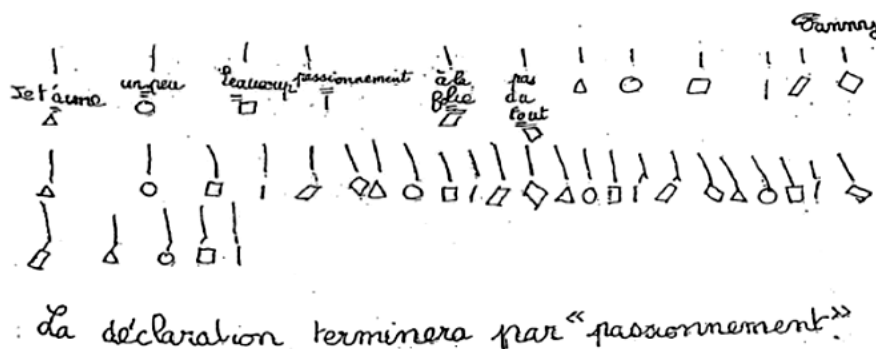 Fanny
Je t'aime un peu beaucoup passionnement à la folie pas du tout
La déclaration terminera par “passionnement”.